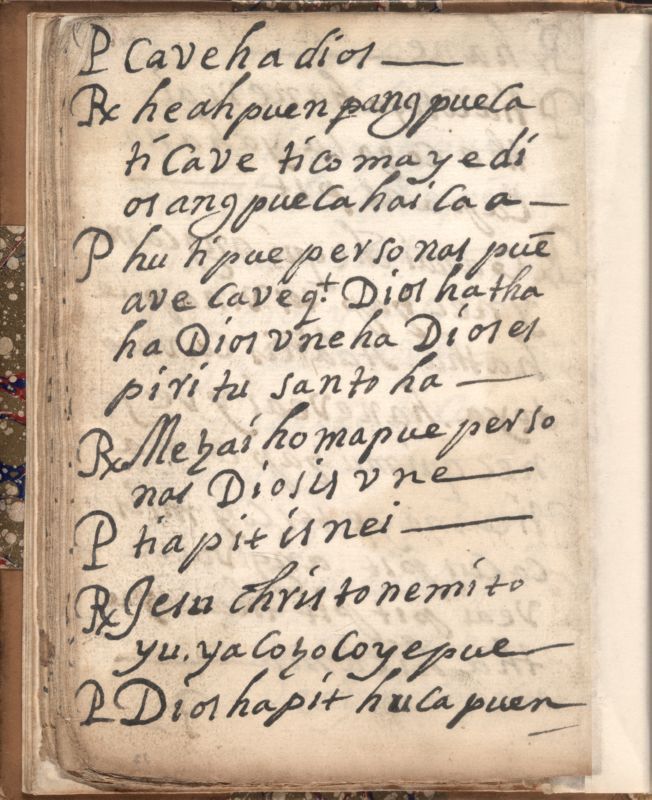 P Caveha dios
Rx heahpuen pangpueCa
ti Cave ticomayedi
os angpueCahaiCaa
P hu tipue personas puē
ave Cave q.t Dios hatha
ha Dios vneha Dios es
piritu santo ha
Rx Meʒaihomapue perso
nas Diosis vne
P tiapit isnei
Rx Jesu christo nemito
yu. yaCoʒoCoyepue
P Dios hapit huCapuen